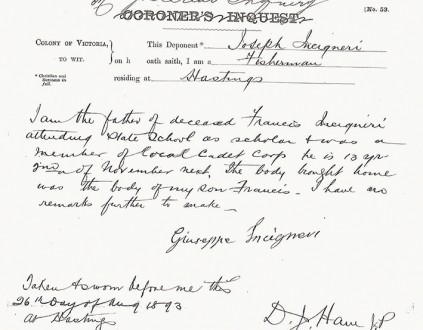 of
CORONER'S INQUEST
[No. 53.
COLONY OF VICTORIA,
TO WIT.
This Deponent* Joseph Incigneri
on h oath saith, I am a Fisherman
* Christian and Surname in full.
residing at Hastings
I am the father of deceased Francis Incigneri
attending State School as scholar & was a
member of local Cadet Corp he is 13 yrs
2nd of November next. The body brought home
was the body of my son Francis - I have no
remarks further to make -
Giuseppe Incigneri
Taken & sworn before me this
26th Day of Aug 1893
at Hastings